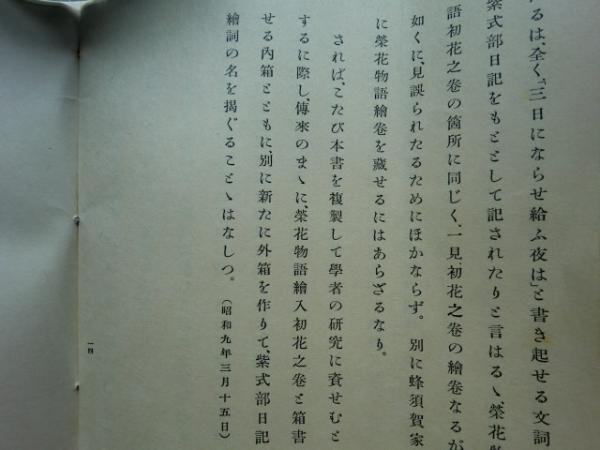 るは全く「三日にならせ給ふ夜は」と書き起せる文詞
紫式部日記をもととして記されたりと言はるゝ、榮花
語初花之卷の箇所に同じく、一見、初花之卷の繪卷なるが
如くに、見誤られたるためにほかならず。別に蜂須賀家
に榮花物語繪卷を藏せるにはあらざるなり。
されば、こたび本書を複製して學者の研究に資せむと
するに際し、傳來のまゝに、榮花物語繪入初花之卷と箱書
せる內箱とともに、別に新たに外箱を作りて、紫式部日記
繪詞の名を揭ぐることゝはなしつ。（昭和九年三月十五日）
一四